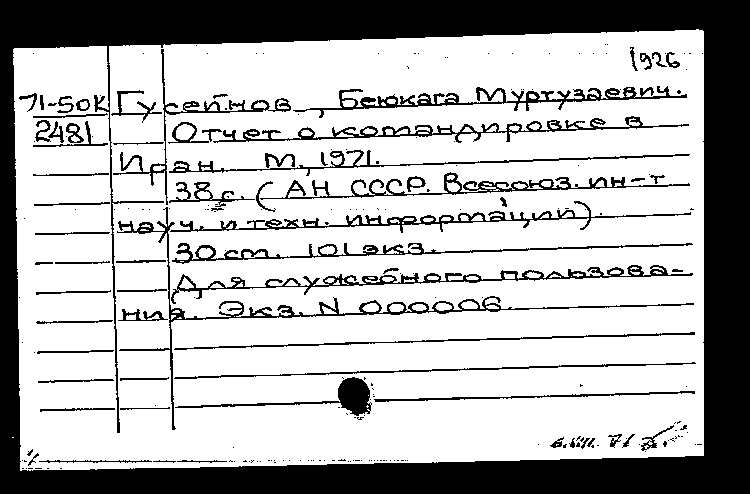 1926
71-50К Гусейнов, Беюкага Муртузаевич.
2481 Отчет о командировке в
Иран. М., 1971.
38 с. (АН СССР. Всесоюз. ин-т
науч. и техн. информации).
30 см. 101 экз.
Для служебного пользова-
ния. Экз. N 000006.
6.VIII. 71